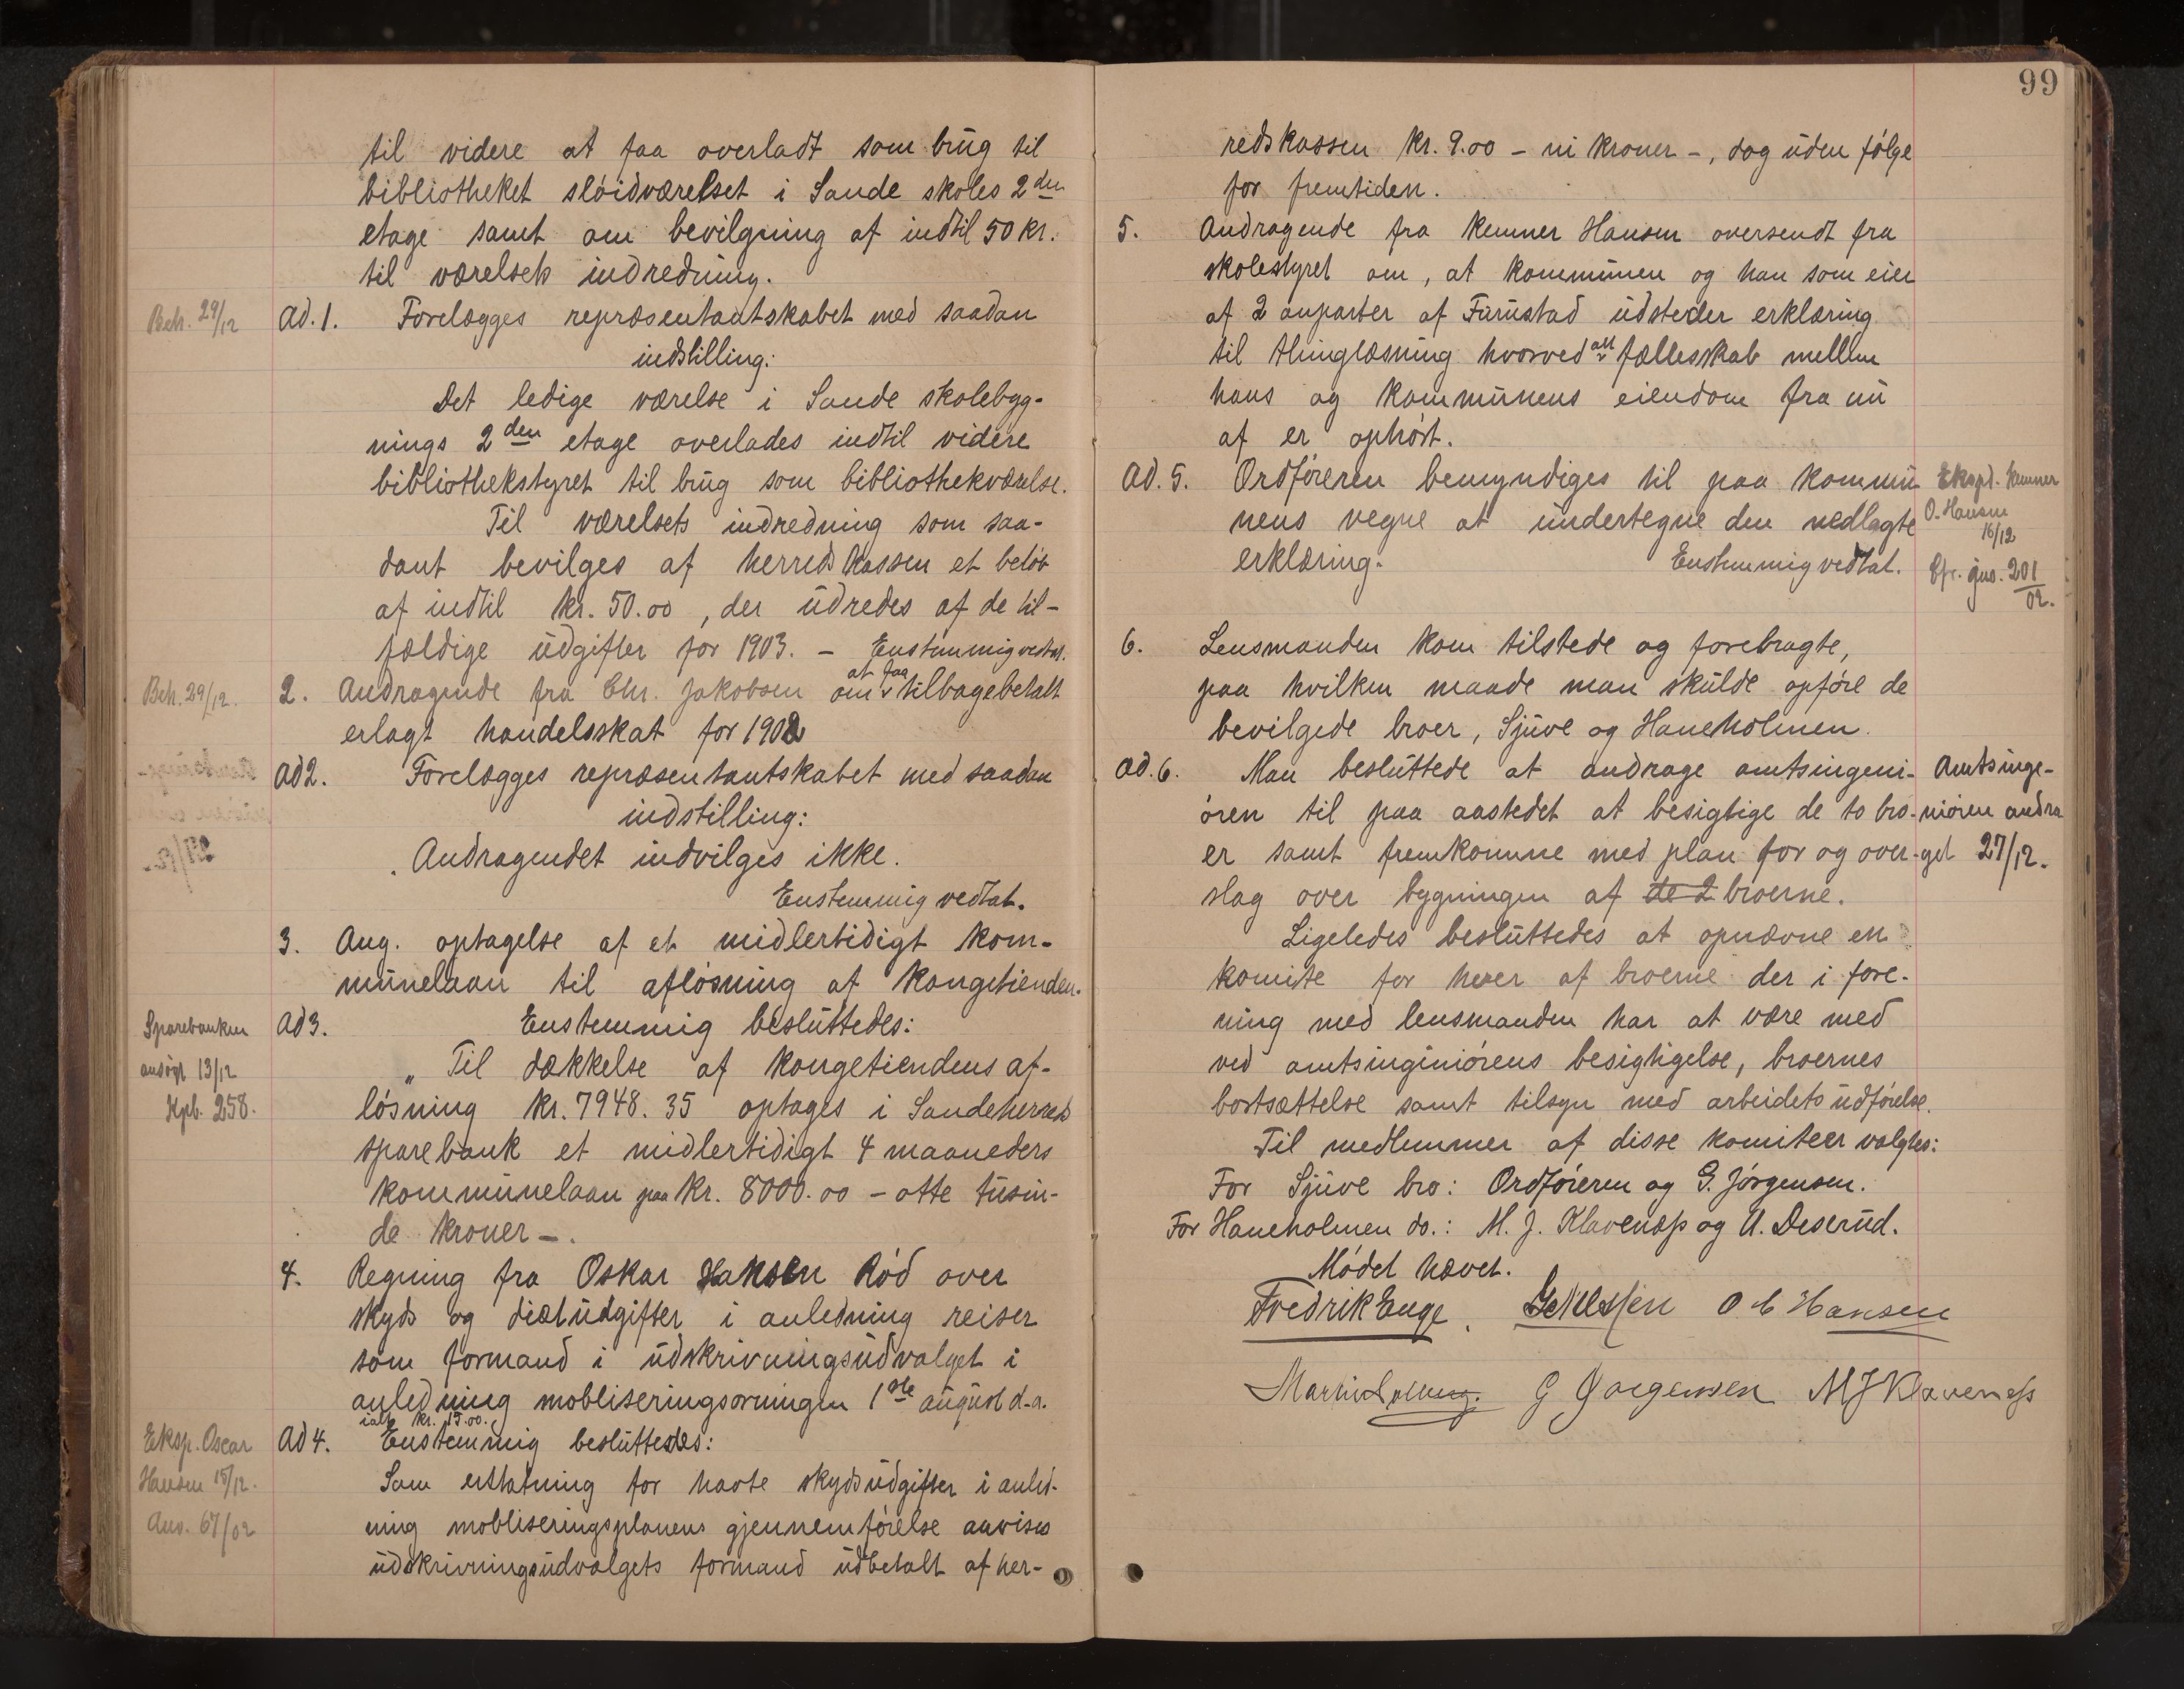 til videre at faa overladt som brug til
bibliotheket sløidværelset i Sande skoles 2den
etage samt om bevilgning af indtil 50 kr.
til værelsets indredning.
Beh. 29/12
ad. 1. Forelægges repræsentantskabet med saadan
indstilling:
Det ledige værelse i Sande skolebyg-
nings 2den etage overlades indtil videre
bibliothekstyret til brug som bibliothekværelse.
Til værelsets indredning som saa-
dant bevilges af herredskassen et beløb
af indtil kr. 50.00, der udredes af de til-
fældige udgifter for 1903. - Enstemmig vedtat.
Beh. 29/12.
2. Andragende fra Chr. Jakobsen om at faa tilbagebetalt
erlagt handelsskat for 1902
ad 2. Forelægges repræsentantskabet med saadan
indstilling:
Andragendet indvilges ikke.
Enstemmig vedtat.
3. Ang. optagelse af et midlertidigt kom-
munelaan til afløsning af Kongetienden.
Sparebanken
ansøgt 13/12
Kpb. 258.
ad 3. Enstemmig besluttedes:
„Til dækkelse af kongetiendens af-
løsning kr. 7948.35 optages i Sandeherreds
sparebank et midlertidigt 4 maaneders
kommunelaan paa kr. 8000.00 - otte tusin-
de kroner -.
4. Regning fra Oskar Hansen Rød over
skyds og diætudgifter i anledning reiser
som formand i udskrivningsudvalget i
anledning mobliseringsovningen 1ste august d.a.
ialt kr. 15.00.
Eksp. Oscar
Hansen 15/12.
Anv. 67/02
ad 4. Enstemmig besluttedes:
Som erstatning for havte skydsudgifter i anled-
ning mobliseringsplanens gjennemførelse anvises
udskrivningsudvalgets formand udbetalt af her-
99
redskassen kr. 9.00 - ni kroner -, dog uden følge
for fremtiden.
5. Andragende fra kemner Hansen oversendt fra
skolestyret om, at kommunen og han som eier
af 2 anparter af Furustad udsteder erklæring
til thinglæsning hvorved alt fællesskab mellem
hans og kommunens eiendom fra nu
af er ophørt.
ad. 5. Ordføreren bemyndiges til paa kommu
nens vegne at undertegne den nedlagte
erklæring. Enstemmig vedtat.
Ekspd. kemner
O. Hansen
16/12
Cfr. jno. 201/02.
6. Lensmanden kom tilstede og forebragte,
paa hvilken maade man skulde opføre de
bevilgede broer, Sjuve og Haneholmen.
ad. 6. Man besluttede at andrage amtsingeni-
øren til paa aastedet at besigtige de to bro-
er samt fremkomme med plan for og over-
slag over bygningen af de 2 broerne.
Amtsinge-
niøren andra
get 27/12.
Ligeledes besluttedes at opnævne en
komite for hver af broerne der i fore-
ning med lensmanden har at være med
ved amtsinginiørens besigtigelse, broernes
bortsættelse samt tilsyn med arbeidets udførelse.
Til medlemmer af disse komiteer valgtes:
For Sjuve bro: Ordføreren og G. Jørgensen.
For Haneholmen do.: M. J. Klavenæs og A. Deserud.
Mødet hævet.
Fredrik Enge. O C Hansen
G Jørgensen M J Klavenæss